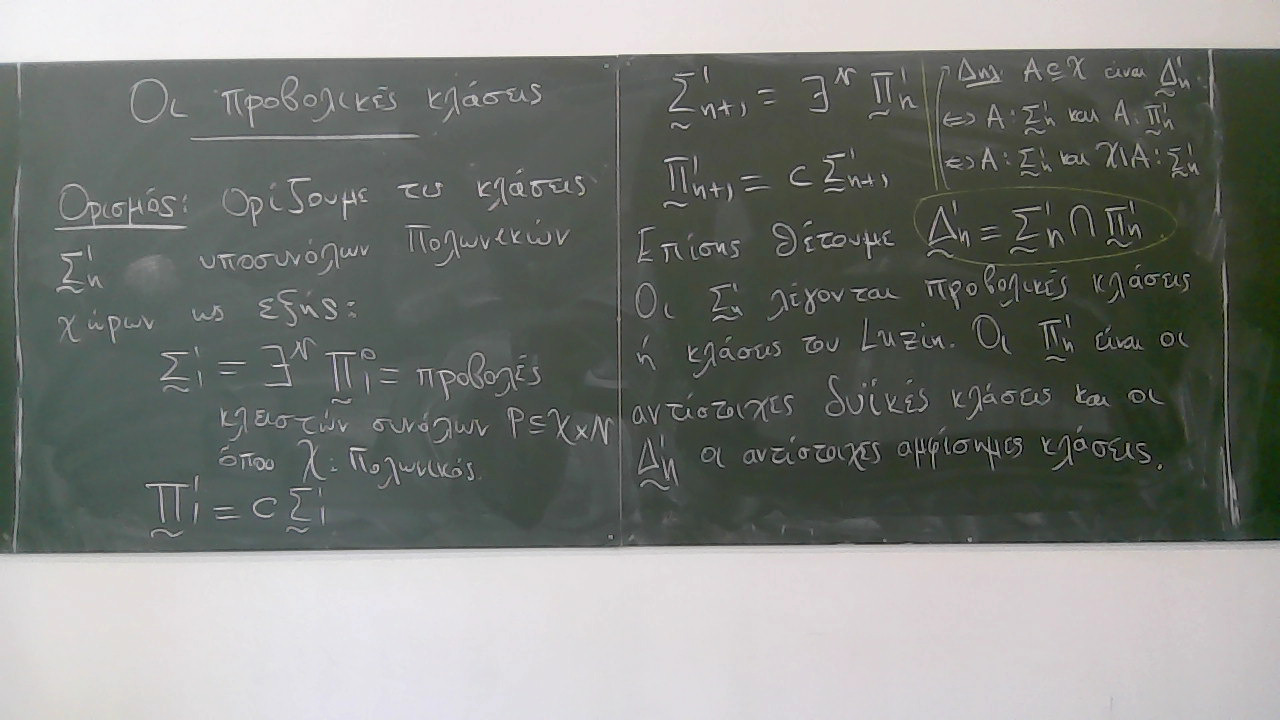 Οι προβολικές κλάσεις
Ορισμός: Ορίζουμε τις κλάσεις
Σ̰¹ₙ υποσυνόλων Πολωνικών
χώρων ως εξής:
Σ̰¹₁ = ∃ᴺ Π̰⁰₁ = προβολές
κλειστών συνόλων P ⊆ X × N
όπου X: Πολωνικός.
Π̰¹₁ = c Σ̰¹₁
Σ̰¹ₙ₊₁ = ∃ᴺ Π̰¹ₙ
Π̰¹ₙ₊₁ = c Σ̰¹ₙ₊₁
Δηλ A ⊆ X είναι Δ̰¹ₙ
⇔ A: Σ̰¹ₙ και A: Π̰¹ₙ
⇔ A: Σ̰¹ₙ και X\A: Σ̰¹ₙ
Επίσης θέτουμε Δ̰¹ₙ = Σ̰¹ₙ ∩ Π̰¹ₙ
Οι Σ̰¹ₙ λέγονται προβολικές κλάσεις
ή κλάσεις του Luzin. Οι Π̰¹ₙ είναι οι
αντίστοιχες δυϊκές κλάσεις και οι
Δ̰¹ₙ οι αντίστοιχες αμφίσημες κλάσεις.